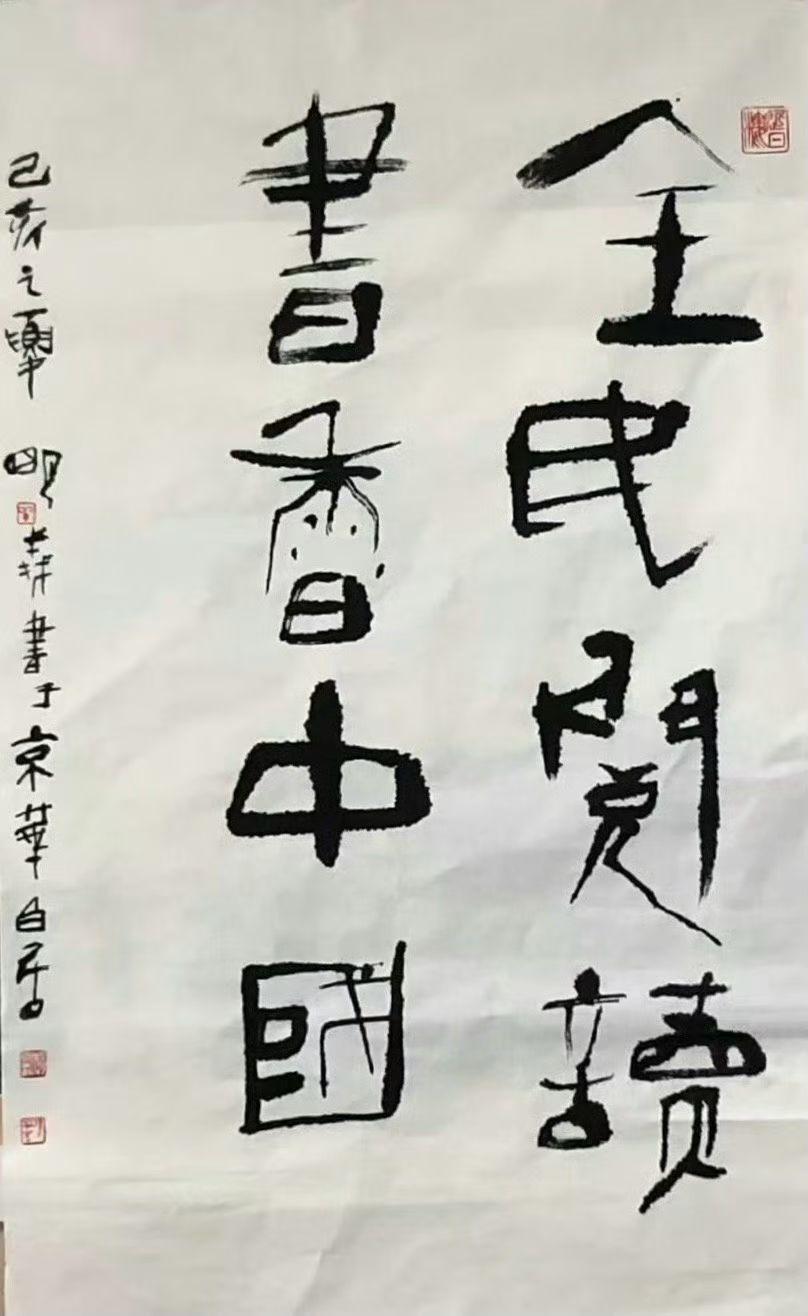 全民閱讀
書香中國
己亥之夏 明 書于京華白居